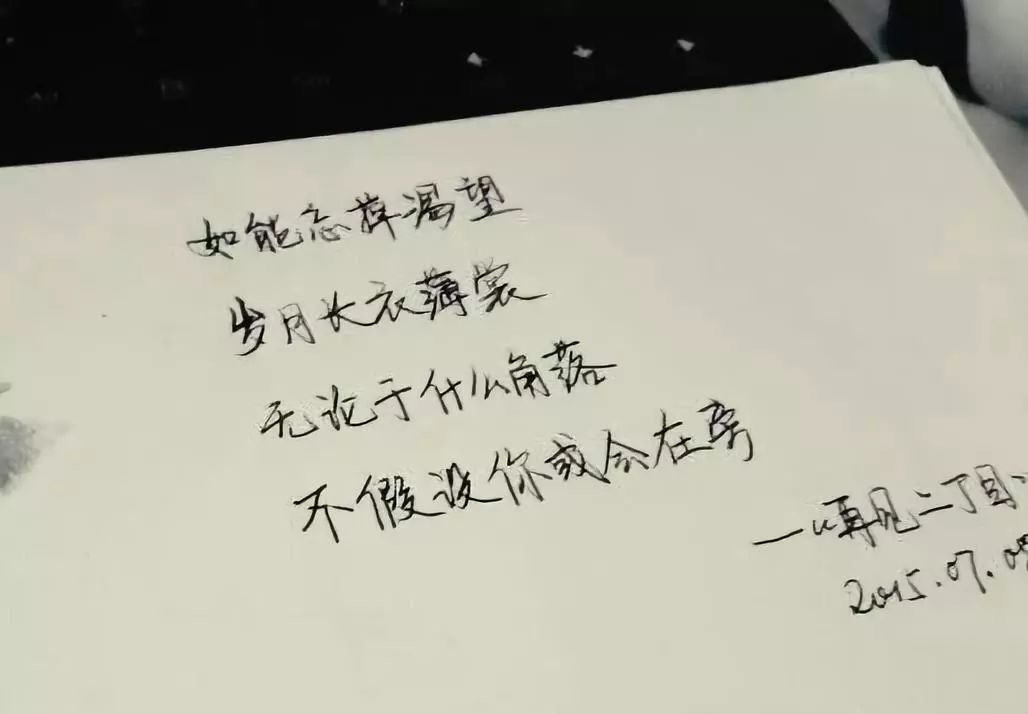 如能忘掉渴望
岁月长衣薄裳
无论于什么角落
不假设你或会在旁
——“再见二丁目”
2015.07.0